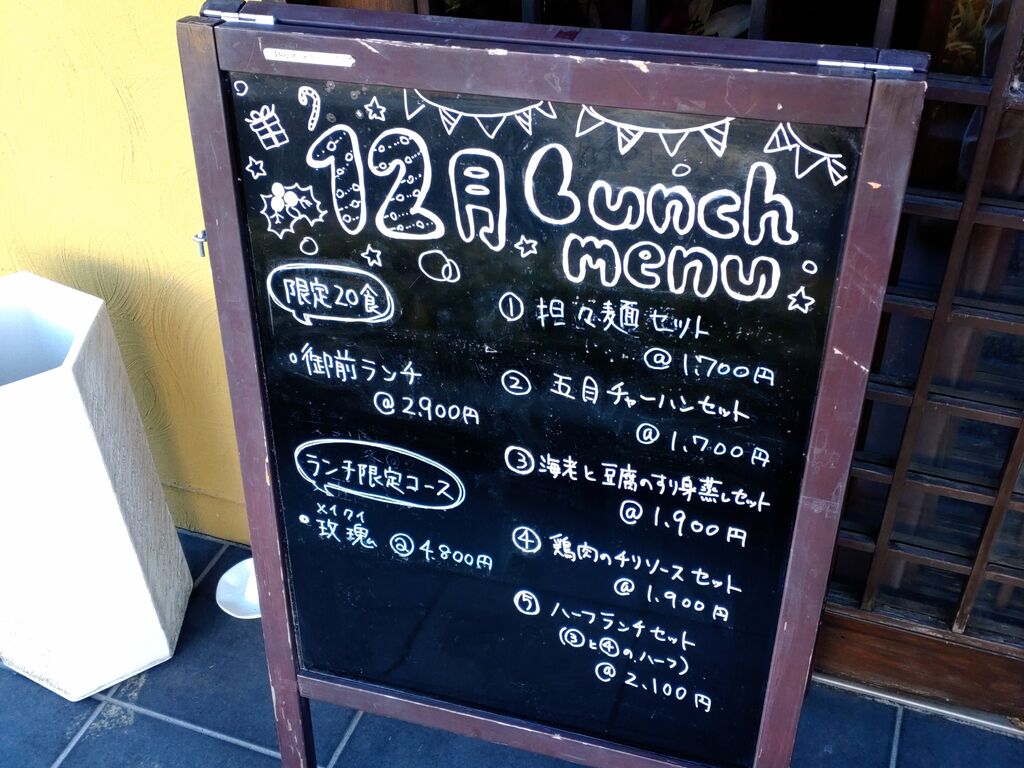 12月 Lunch
menu
限定20食
御前ランチ
@2.900円
ランチ限定コース
メイクイ
玫瑰 @4.800円
① 担々麺セット
@1.700円
② 五目チャーハンセット
@1.700円
③ 海老と豆腐のすり身蒸しセット
@1.900円
④ 鶏肉のチリソースセット
@1.900円
⑤ ハーフランチセット
(③と④のハーフ)
@2.100円